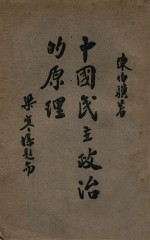 陳著
中國民主政治
的原理
梁寒操題耑